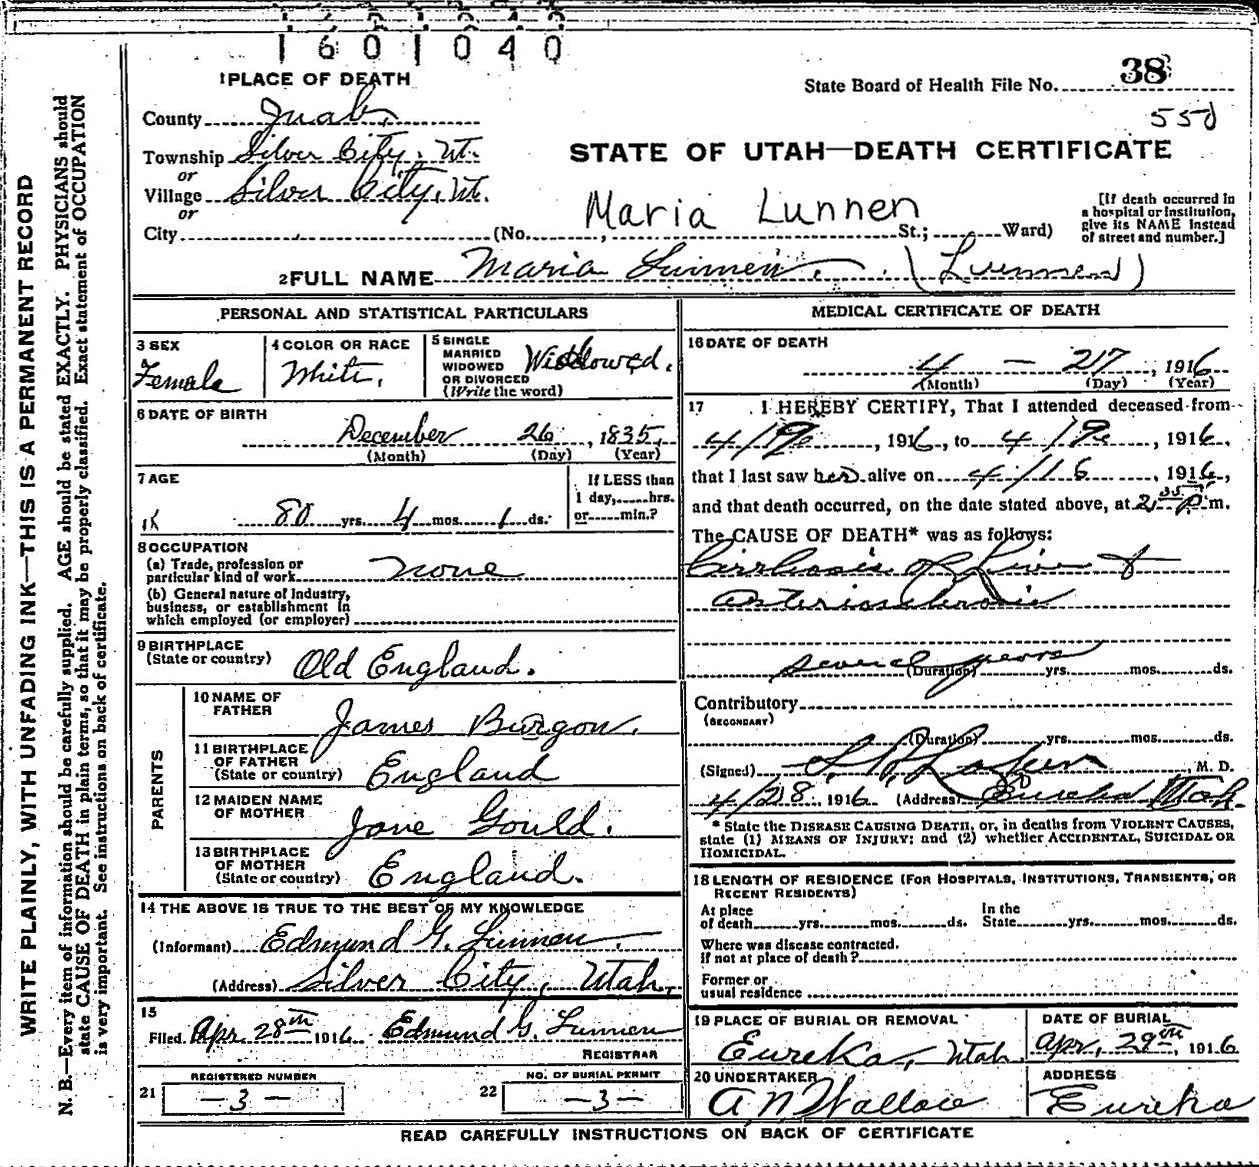 1601040
1 PLACE OF DEATH
State Board of Health File No. 38
550
County Juab,
Township Silver City, Ut.
or
STATE OF UTAH—DEATH CERTIFICATE
Village Silver City, Ut.
or
Maria Lunnen
[If death occurred in a hospital or institution, give its NAME instead of street and number.]
City (No. , St.; Ward)
2 FULL NAME Maria Lunnen. (Lunnen)
PERSONAL AND STATISTICAL PARTICULARS
3 SEX
Female
4 COLOR OR RACE
White.
5 SINGLE
MARRIED
WIDOWED
OR DIVORCED
(Write the word)
Widowed.
6 DATE OF BIRTH
December 26, 1835,
(Month) (Day) (Year)
7 AGE
80 yrs. 4 mos. 1 ds.
If LESS than
1 day, hrs.
or min.?
8 OCCUPATION
(a) Trade, profession or
particular kind of work none
(b) General nature of industry,
business, or establishment in
which employed (or employer)
9 BIRTHPLACE
(State or country) Old England.
PARENTS
10 NAME OF
FATHER James Burgon.
11 BIRTHPLACE
OF FATHER
(State or country) England
12 MAIDEN NAME
OF MOTHER Jane Gould.
13 BIRTHPLACE
OF MOTHER
(State or country) England.
14 THE ABOVE IS TRUE TO THE BEST OF MY KNOWLEDGE
(Informant) Edmund G. Lunnen.
(Address) Silver City, Utah,
15
Filed Apr. 28th 1916 Edmund G. Lunnen
REGISTRAR
REGISTERED NUMBER
21 —3—
NO. OF BURIAL PERMIT
22 —3—
MEDICAL CERTIFICATE OF DEATH
16 DATE OF DEATH
4 — 27, 1916
(Month) (Day) (Year)
17 I HEREBY CERTIFY, That I attended deceased from
, 1916, to , 1916,
that I last saw her alive on 4/16, 1916,
and that death occurred, on the date stated above, at 2 35 P m.
The CAUSE OF DEATH* was as follows:
Cirrhosis of Liver &
arteriosclerosis
several years
(Duration) yrs. mos. ds.
Contributory
(SECONDARY)
(Duration) yrs. mos. ds.
(Signed) , M. D.
4/28, 1916 (Address) Eureka Utah.
* State the DISEASE CAUSING DEATH, or, in deaths from VIOLENT CAUSES,
state (1) MEANS OF INJURY; and (2) whether ACCIDENTAL, SUICIDAL OR
HOMICIDAL.
18 LENGTH OF RESIDENCE (FOR HOSPITALS, INSTITUTIONS, TRANSIENTS, OR
RECENT RESIDENTS)
At place
of death yrs. mos. ds.
In the
State yrs. mos. ds.
Where was disease contracted.
if not at place of death?
Former or
usual residence
19 PLACE OF BURIAL OR REMOVAL
Eureka, Utah.
DATE OF BURIAL
Apr. 29th, 1916
20 UNDERTAKER
A N Wallace
ADDRESS
Eureka
READ CAREFULLY INSTRUCTIONS ON BACK OF CERTIFICATE
WRITE PLAINLY, WITH UNFADING INK—THIS IS A PERMANENT RECORD
N. B.—Every item of information should be carefully supplied. AGE should be stated EXACTLY. PHYSICIANS should
state CAUSE OF DEATH in plain terms, so that it may be properly classified. Exact statement of OCCUPATION
is very important. See instructions on back of certificate.